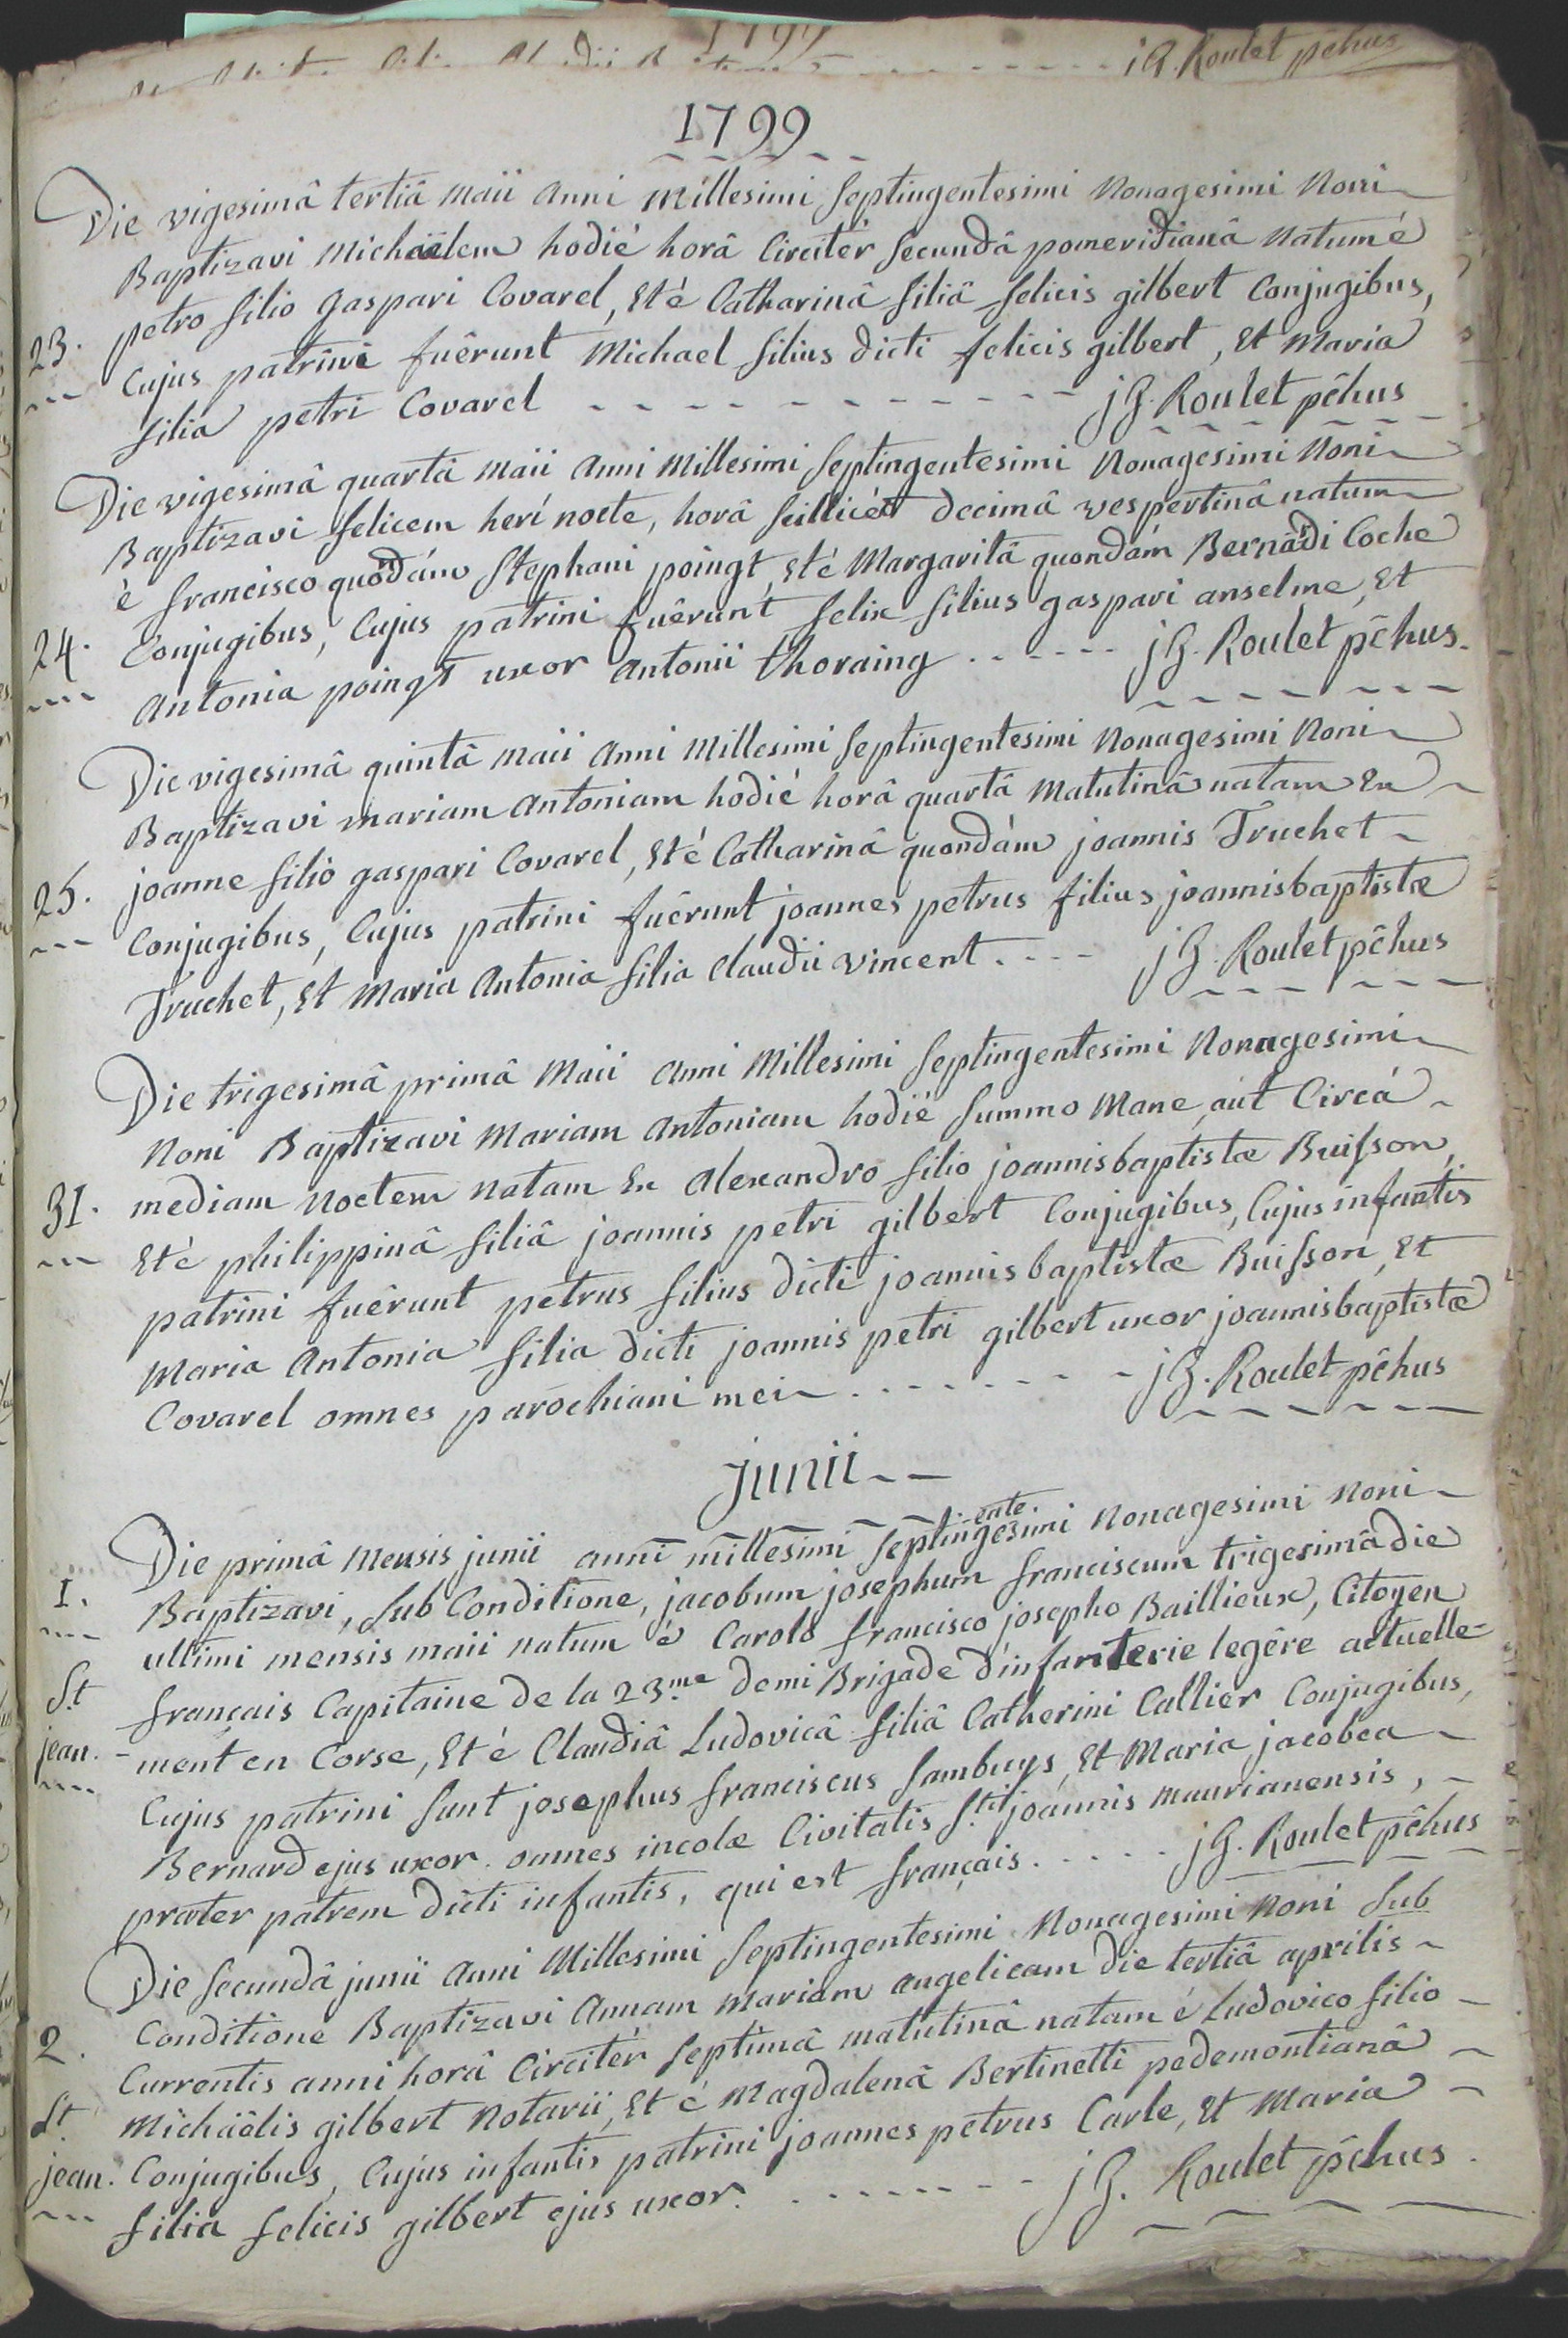 1799
jG. Roulet pêhus
1799
Die vigesimâ tertiâ maii anni Millesimi Septingentesimi Nonagesimi Noni
Baptizavi Michaëlem hodié horâ Circitér Secundâ pomeridianâ Natum é
23. petro filio gaspari Covarel, Et é Catharinâ filiâ felicis gilbert Conjugibus,
Cujus patrini fuêrunt Michael filius dicti felicis gilbert, Et Maria
filia petri Covarel - - - - - - - - - - - - jG. Roulet pêhus
Die vigesimâ quartâ maii anni Millesimi Septingentesimi Nonagesimi Noni
Baptizavi felicem herí nocte, horâ Scillicét decimâ vespertinâ natum
è francisco quondám Stephani poingt, Et é Margaritâ quondám Bernardi Coche
24. Conjugibus, Cujus patrini fuêrunt felix filius gaspari anselme, Et
Antonia poingt uxor Antonii thoraing . - - - - - jG. Roulet pêhus.
Die vigesimâ quintâ maii anni Millesimi Septingentesimi Nonagesimi Noni
Baptizavi mariam Antoniam hodié horâ quartâ Matutinâ natam Ex
25. joanne filio gaspari Covarel, Et é Catharinâ quondám joannis Truchet
Conjugibus, Cujus patrini fuêrunt joannes petrus filius joannisbaptistæ
Truchet, Et Maria Antonia filia Claudii vincent. - - - jG. Roulet pêhus
Die trigesimâ primâ Maii anni Millesimi Septingentesimi Nonagesimi
Noni Baptizavi Mariam Antoniam hodié Summo Mane, aut Circá
31. mediam Noctem natam Ex Alexandro filio joannisbaptistæ Buisson,
Et é philippinâ filiâ joannis petri gilbert Conjugibus, Cujus infantis
patrini fuêrunt petrus filius dicti joannisbaptistæ Buisson, Et
Maria Antonia filia dicti joannis petri gilbert uxor joannisbaptistæ
Covarel omnes parochiani mei . - - - - - - - jG. Roulet pêhus
junii
ente.
Die primâ Mensis junii anni millesimi Septingesimi Nonagesimi Noni
1. Baptizavi, Sub Conditione, jacobum josephum franciscum trigesimâ die
ultimi mensis maii natum é Carolo francisco josepho Baillieux, Citoyen
St français Capitaine de la 23.me demi Brigade d'infanterie legêre actuelle-
jean. -ment en Corse, Et é Claudiâ Ludovicâ filiâ Catherini Callier Conjugibus,
Cujus patrini Sunt josephus franciscus Sambuys, Et Maria jacobea
Bernard ejus uxor. omnes incolæ Civitatis S.ti joannis maurianensis,
præter patrem dicti infantis, qui est français. - - - - - jG. Roulet pêhus
Die Secundâ junii anni Millesimi Septingentesimi Nonagesimi Noni Sub
Conditione Baptizavi Annam Mariam angelicam die tertiâ aprilis
2. Currentis anni horâ Circitér Septimâ matutinâ natam é Ludovico filio
St Michaëlis gilbert Notarii, Et é Magdalenâ Bertinetti pedemontianâ
jean. Conjugibus, Cujus infantis patrini joannes petrus Carle, Et Maria
filia felicis gilbert ejus uxor. . - - - - - - - jG. Roulet pêhus.